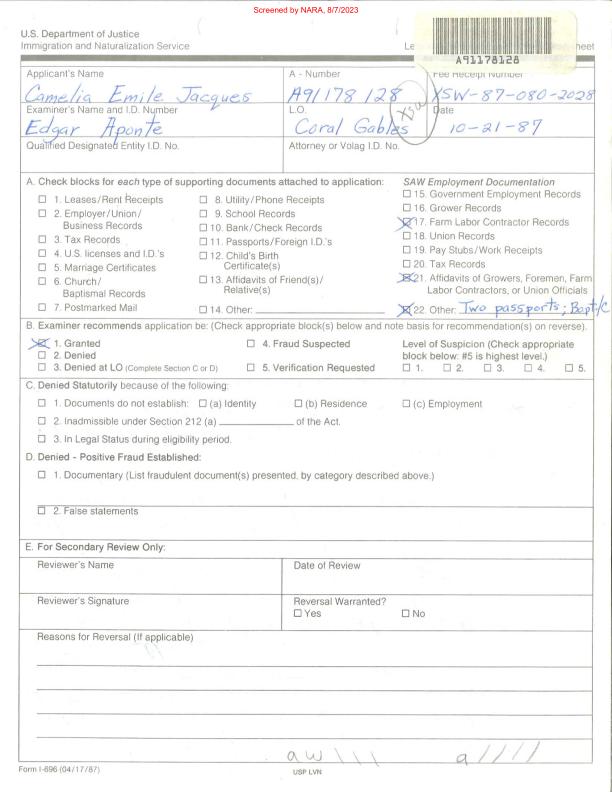 Screened by NARA, 8/7/2023
U.S. Department of Justice
Immigration and Naturalization Service
A91178128
Applicant's Name A - Number Fee Receipt Number
Camelia Emile Jacques A91 178 128 XSW-87-080-2028
Examiner's Name and I.D. Number L.O. XSW Date
Edgar Aponte Coral Gables 10-21-87
Qualified Designated Entity I.D. No. Attorney or Volag I.D. No.
A. Check blocks for each type of supporting documents attached to application:
☐ 1. Leases/Rent Receipts
☐ 2. Employer/Union/
Business Records
☐ 3. Tax Records
☐ 4. U.S. licenses and I.D.'s
☐ 5. Marriage Certificates
☐ 6. Church/
Baptismal Records
☐ 7. Postmarked Mail
☐ 8. Utility/Phone Receipts
☐ 9. School Records
☐ 10. Bank/Check Records
☐ 11. Passports/Foreign I.D.'s
☐ 12. Child's Birth
Certificate(s)
☐ 13. Affidavits of Friend(s)/
Relative(s)
☐ 14. Other:
SAW Employment Documentation
☐ 15. Government Employment Records
☐ 16. Grower Records
☒ 17. Farm Labor Contractor Records
☐ 18. Union Records
☐ 19. Pay Stubs/Work Receipts
☐ 20. Tax Records
☒ 21. Affidavits of Growers, Foremen, Farm
Labor Contractors, or Union Officials
☒ 22. Other: Two passports; Bapt/C
B. Examiner recommends application be: (Check appropriate block(s) below and note basis for recommendation(s) on reverse).
☒ 1. Granted
☐ 2. Denied
☐ 3. Denied at LO (Complete Section C or D)
☐ 4. Fraud Suspected
☐ 5. Verification Requested
Level of Suspicion (Check appropriate
block below: #5 is highest level.)
☐ 1. ☐ 2. ☐ 3. ☐ 4. ☐ 5.
C. Denied Statutorily because of the following:
☐ 1. Documents do not establish: ☐ (a) Identity ☐ (b) Residence ☐ (c) Employment
☐ 2. Inadmissible under Section 212 (a) ________ of the Act.
☐ 3. In Legal Status during eligibility period.
D. Denied - Positive Fraud Established:
☐ 1. Documentary (List fraudulent document(s) presented, by category described above.)
☐ 2. False statements
E. For Secondary Review Only:
Reviewer's Name Date of Review
Reviewer's Signature Reversal Warranted?
☐ Yes ☐ No
Reasons for Reversal (If applicable)
Form I-696 (04/17/87) USP LVN